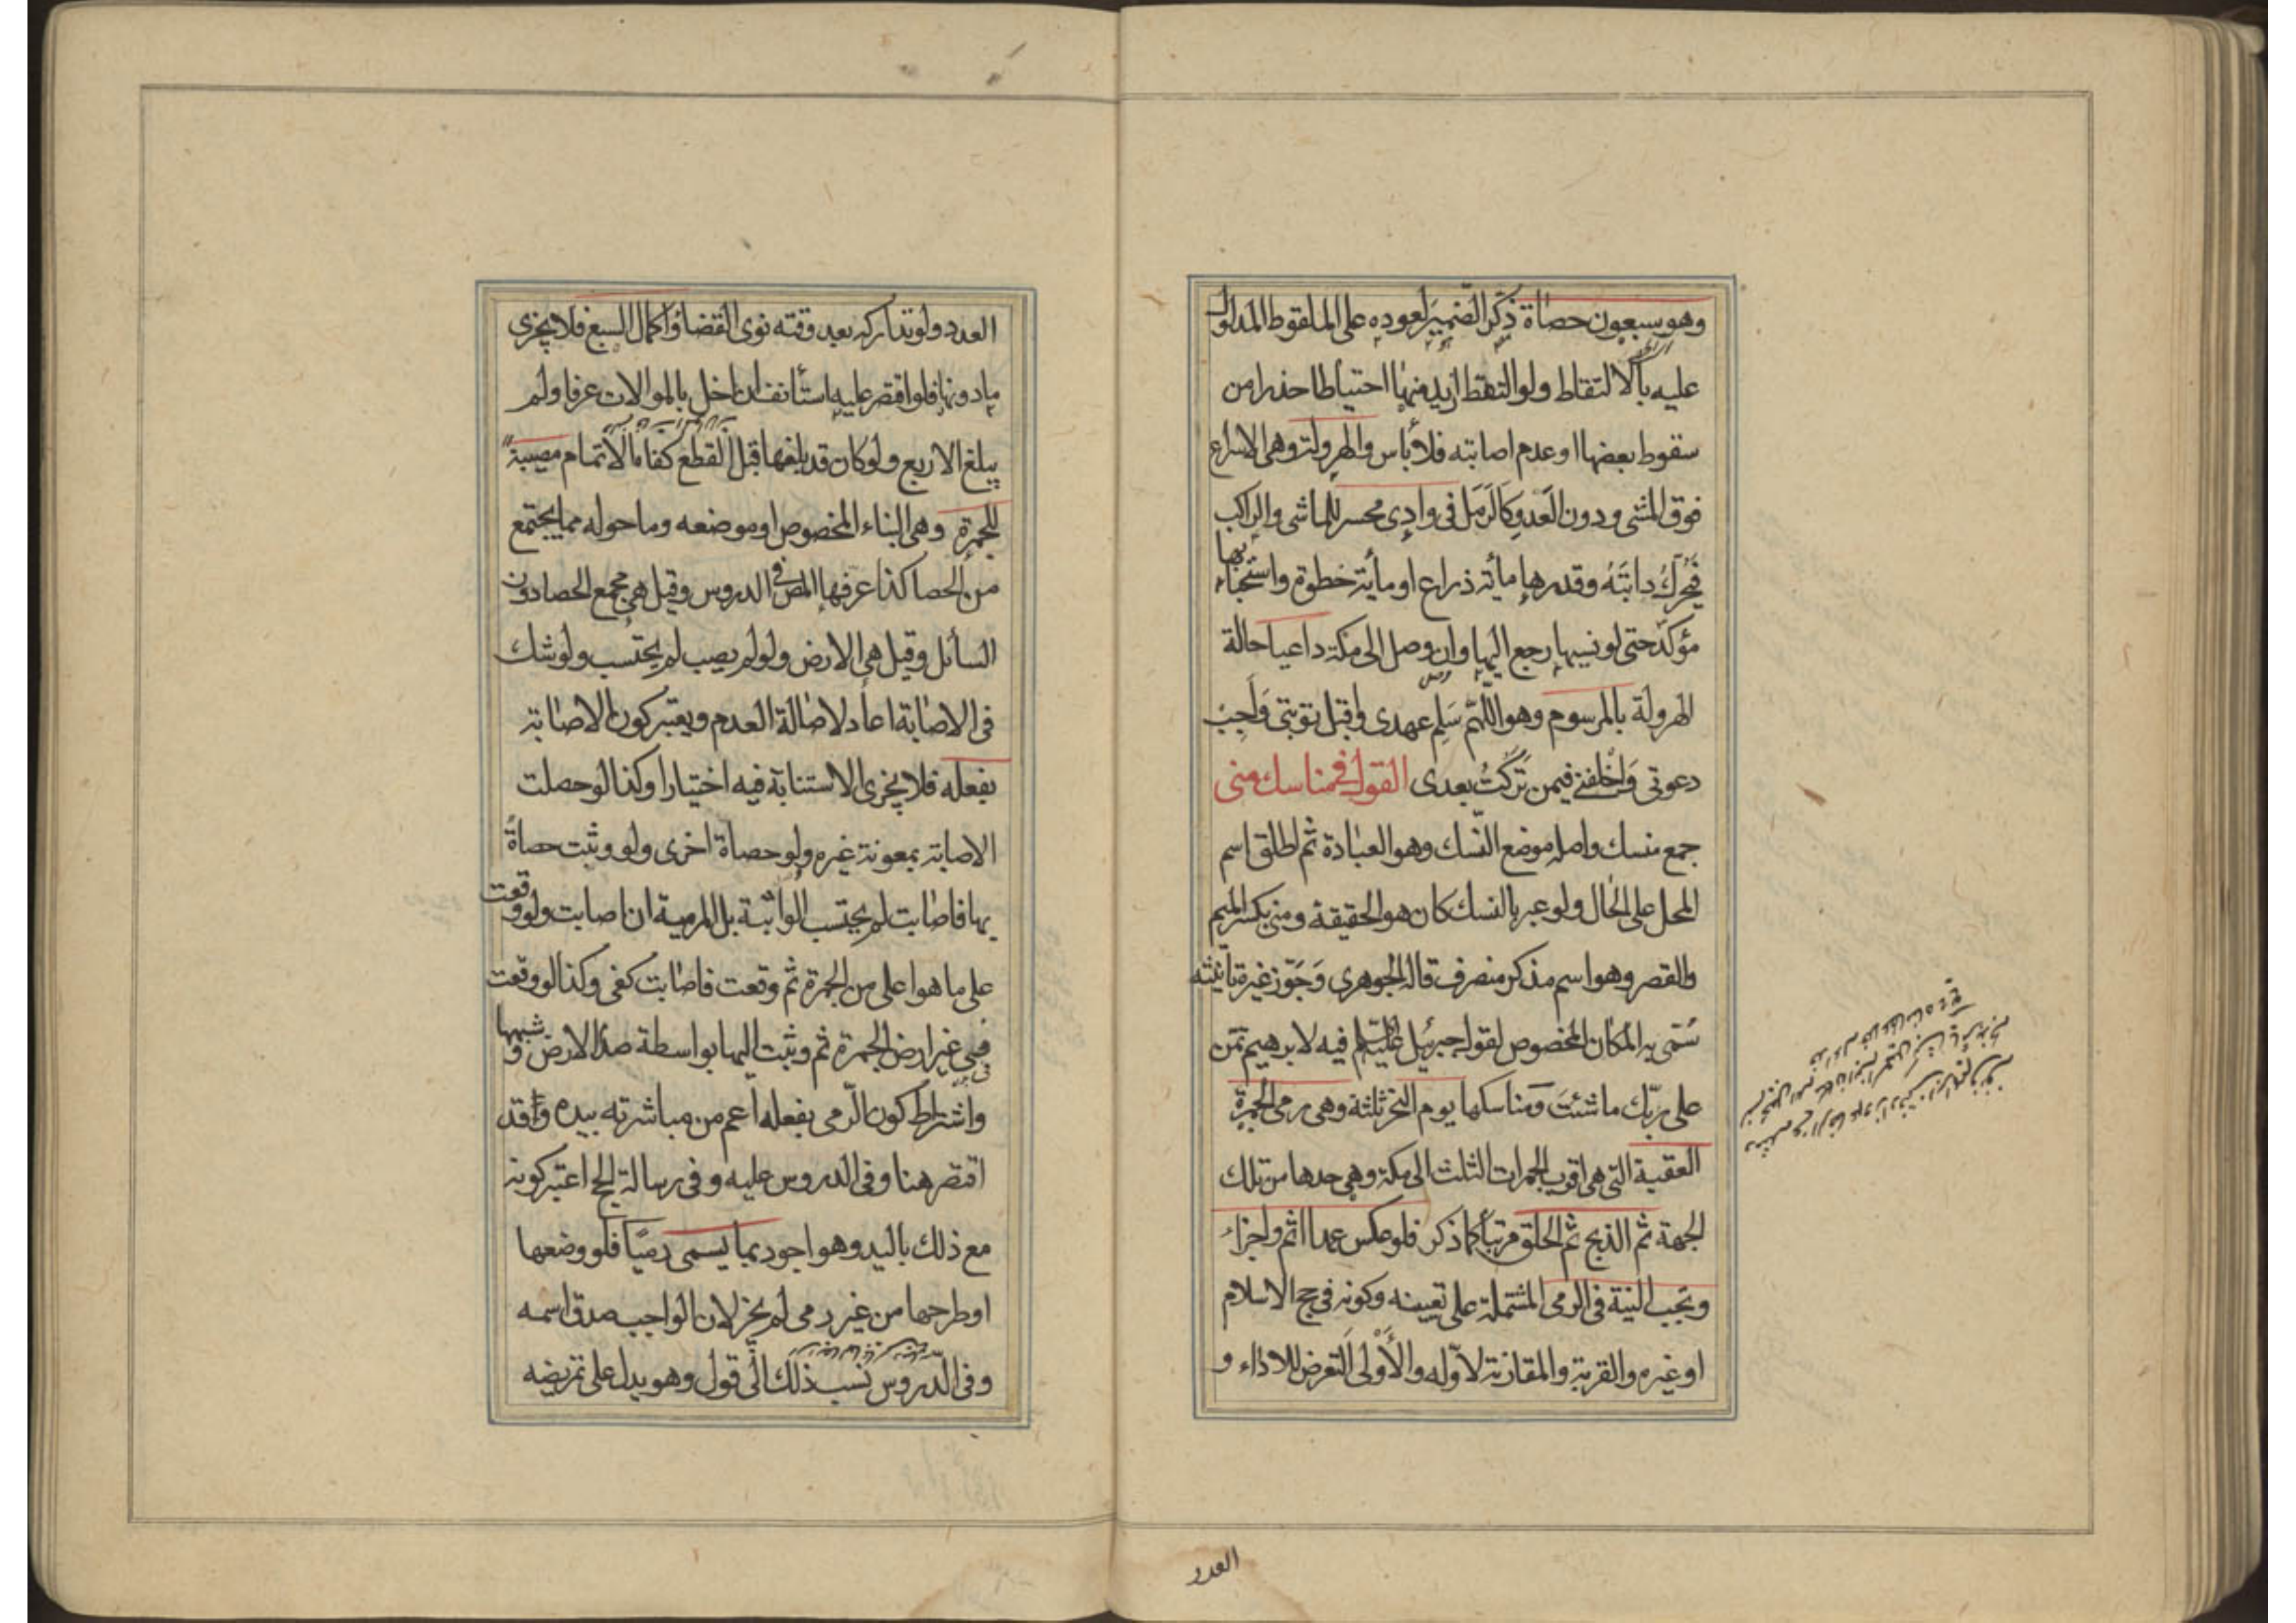 وهو سبعون حصاة ذكر الضمير لعوده على الملقوط المدلول
عليه بالالتقاط ولو التقط ازيد منها احتياطا حذرا من
سقوط بعضها او عدم اصابته فلا بأس والهرولة وهي الاسراع
فوق المشي ودون العدو كالرمل في وادي محسر للماشي والراكب
فيحرك دابته وقدرها مأئة ذراع او مأئة خطوة واستحبابها
مؤكد حتى لو نسيها رجع اليها وان وصل الى مكة داعيا حالة
الهرولة بالمرسوم وهو اللهم سلم عهدي واقبل توبتي واجب
دعوتي واخلفني فيمن تركت بعدي القول في مناسك منى
جمع منسك واصله موضع النسك وهو العبادة ثم اطلق اسم
المحل على الحال ولو عبر بالنسك كان هو الحقيقة ومنى بكسر الميم
والقصر وهو اسم مذكر منصرف قاله الجوهري وجوز غيره تأنيثه
سمي به المكان المخصوص لقول جبرئيل عليه السلم فيه لابرهيم تمن
على ربك ما شئت ومناسكها يوم النحر ثلثة وهي رمي الجمرة
العقبة التي هي اقرب الجمرات الثلث الى مكة وهي حدها من تلك
الجهة ثم الذبح ثم الحلق مرتبا كما ذكر فلو عكس عمدا اثم واجزاء
وتجب النية في الرمي المشتملة على تعيينه وكونه في حج الاسلام
او غيره والقربة والمقارنة لاوله والاولى التعرض للاداء و
العدد
العدد ولو تداركه بعد وقته نوى القضاء واكمال السبع فلا يجزى
مادونها فلو اقتصر عليه استأنف ان اخل بالموالات عرفا ولم
يبلغ الاربع ولو كان قد بلغها قبل القطع كفاه الاتمام مصيبة
للجمرة وهي البناء المخصوص او موضعه وما حوله مما يجتمع
من الحصا كذا عرفها المص في الدروس وقيل هي مجمع الحصا دون
السائل وقيل هي الارض ولو لم يصب لم يحتسب ولو شك
في الاصابة اعاد لاصالة العدم ويعتبر كون الاصابة
بفعله فلا يجزى الاستنابة فيه اختيارا وكذا لو حصلت
الاصابة بمعونة غيره ولو حصاة اخرى ولو وثبت حصاة
بها فاصابت لم يحتسب الواثبة بل المرمية ان اصابت ولو وقعت
على ما هو اعلى من الجمرة ثم وقعت فاصابت كفى وكذا لو وقعت
في غير ارض الجمرة ثم وثبت اليها بواسطة صدم الارض وشبهها
واشتراط كون الرمي بفعله اعم من مباشرته بيده وقد
اقتصر هنا وفي الدروس عليه وفي رسالة الحج اعتبر كونه
مع ذلك باليد وهو اجود بما يسمى رميا فلو وضعها
او طرحها من غير رمي لم يجز لان الواجب صدق اسمه
وفي الدروس نسب ذلك الى قول وهو يدل على تمريضه